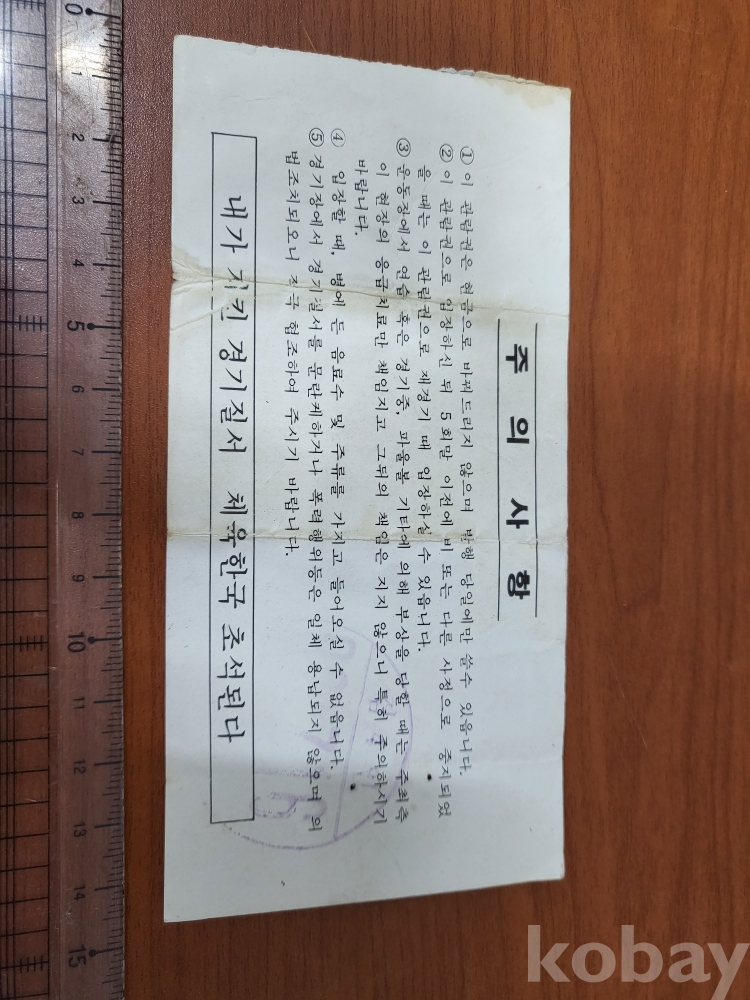 주 의 사 항
① 이 관람권은 현금으로 바꿔드리지 않으며 발행 당일에만 쓸수 있읍니다.
② 이 관람권으로 입장하신 뒤 5회말 이전에 비 또는 다른 사정으로 중지되었
을 때는 이 관람권으로 재경기 때 입장하실 수 있읍니다.
③ 운동장에서 연습 혹은 경기중, 파울볼 기타에 의해 부상을 당할 때는 주최측
이 현장의 응급치료만 책임지고 그뒤의 책임은 지지 않으니 특히 주의하시기
바랍니다.
④ 입장할 때, 병에 든 음료수 및 주류를 가지고 들어오실 수 없읍니다.
⑤ 경기장에서 경기질서를 문란케하거나 폭력행위등은 일체 용납되지 않으며 의
법조치되오니 적극 협조하여 주시기 바랍니다.
내가 지킨 경기질서 체육한국 초석된다
0 1 2 3 4 5 6 7 8 9 10 11 12 13 14 15
kobay